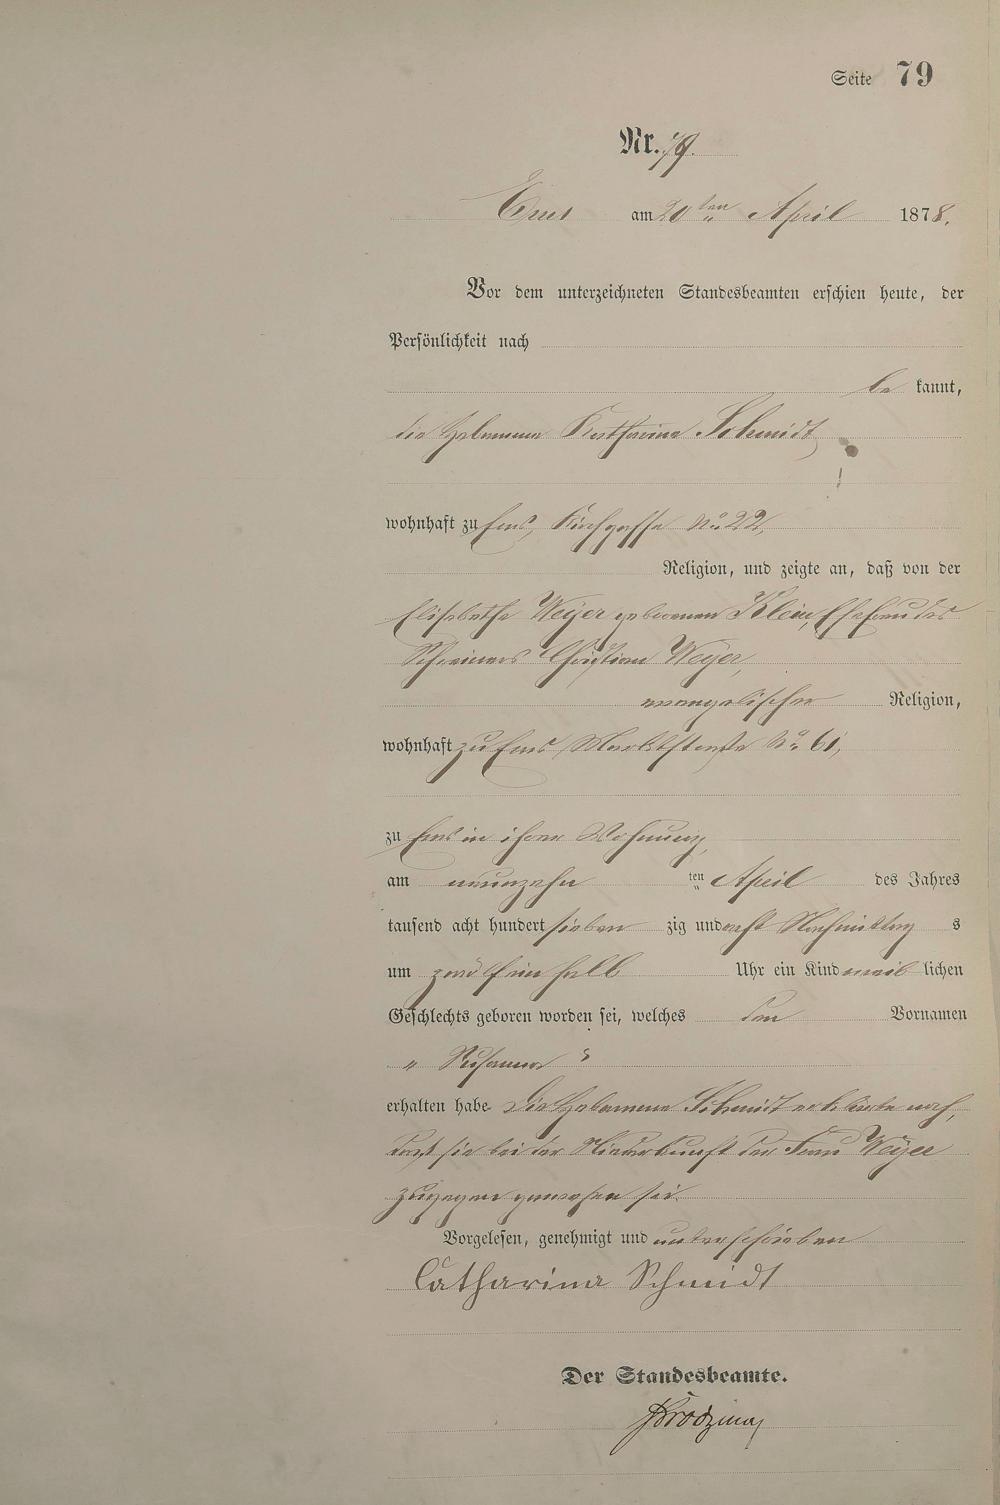 Seite 79
Nr. 79.
Ems am 20ten April 1878.
Vor dem unterzeichneten Standesbeamten erschien heute, der
Persönlichkeit nach
be kannt,
die Hebamme Katharina Schmidt,
wohnhaft zu Ems, Kirchgasse No. 22,
Religion, und zeigte an, daß von der
Elisabetha Weyer geborenen Klein, Ehefrau des
Schreiners Christian Weyer,
evangelischer Religion,
wohnhaft zu Ems Marktstraße No. 61,
zu Ems in ihrer Wohnung,
am neunzehn ten April des Jahres
tausend acht hundert sieben zig und acht Nachmittag s
um zwölf ein halb Uhr ein Kind weib lichen
Geschlechts geboren worden sei, welches den Vornamen
„ Susanna "
erhalten habe. Die Hebamme Schmidt erklärte noch,
daß sie bei der Niederkunft der Frau Weyer
zugegen gewesen sei.
Vorgelesen, genehmigt und unterschrieben
Catharina Schmidt
Der Standesbeamte.